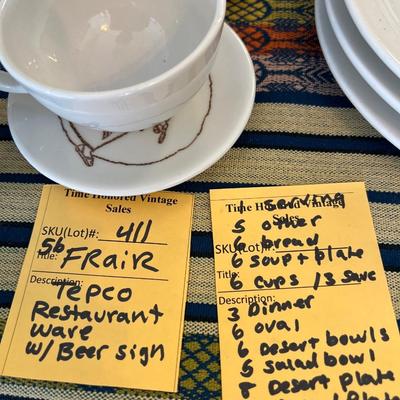 Time Honored Vintage
Sales
SKU(Lot)#: 411
56
Title: FRAIR
Description:
TEPCO
Restaurant
ware
w/ Beer sign
1 Serving
Time Honored Vintage
Sales
5 other
SKU(Lot)#:
Bread
6 soup + plate
Title:
6 cups / 3 sauc
Description:
3 Dinner
6 oval
6 Desert bowls
5 salad bowl
8 Desert Plate